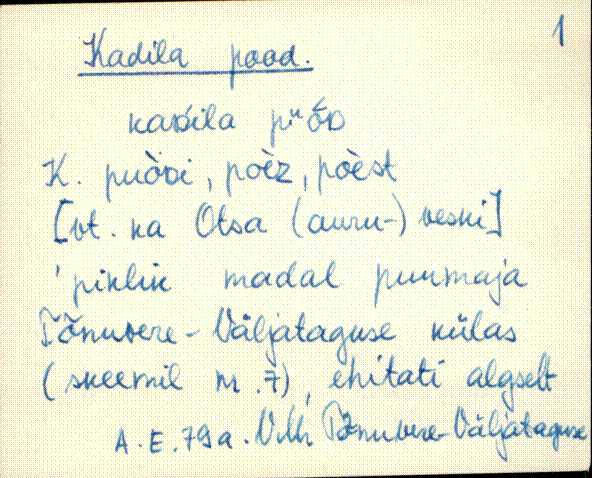 1
Kadila pood.
kaDila pᵘòD
K. puòDi, poèz, poèst
[vt. ka Otsa (auru-) veski]
'piklik madal puumaja
Tõnuvere-Väljataguse külas
(skeemil nr. 7), ehitati algselt
A. E. 79 a. VMr Tõnuvere-Väljataguse